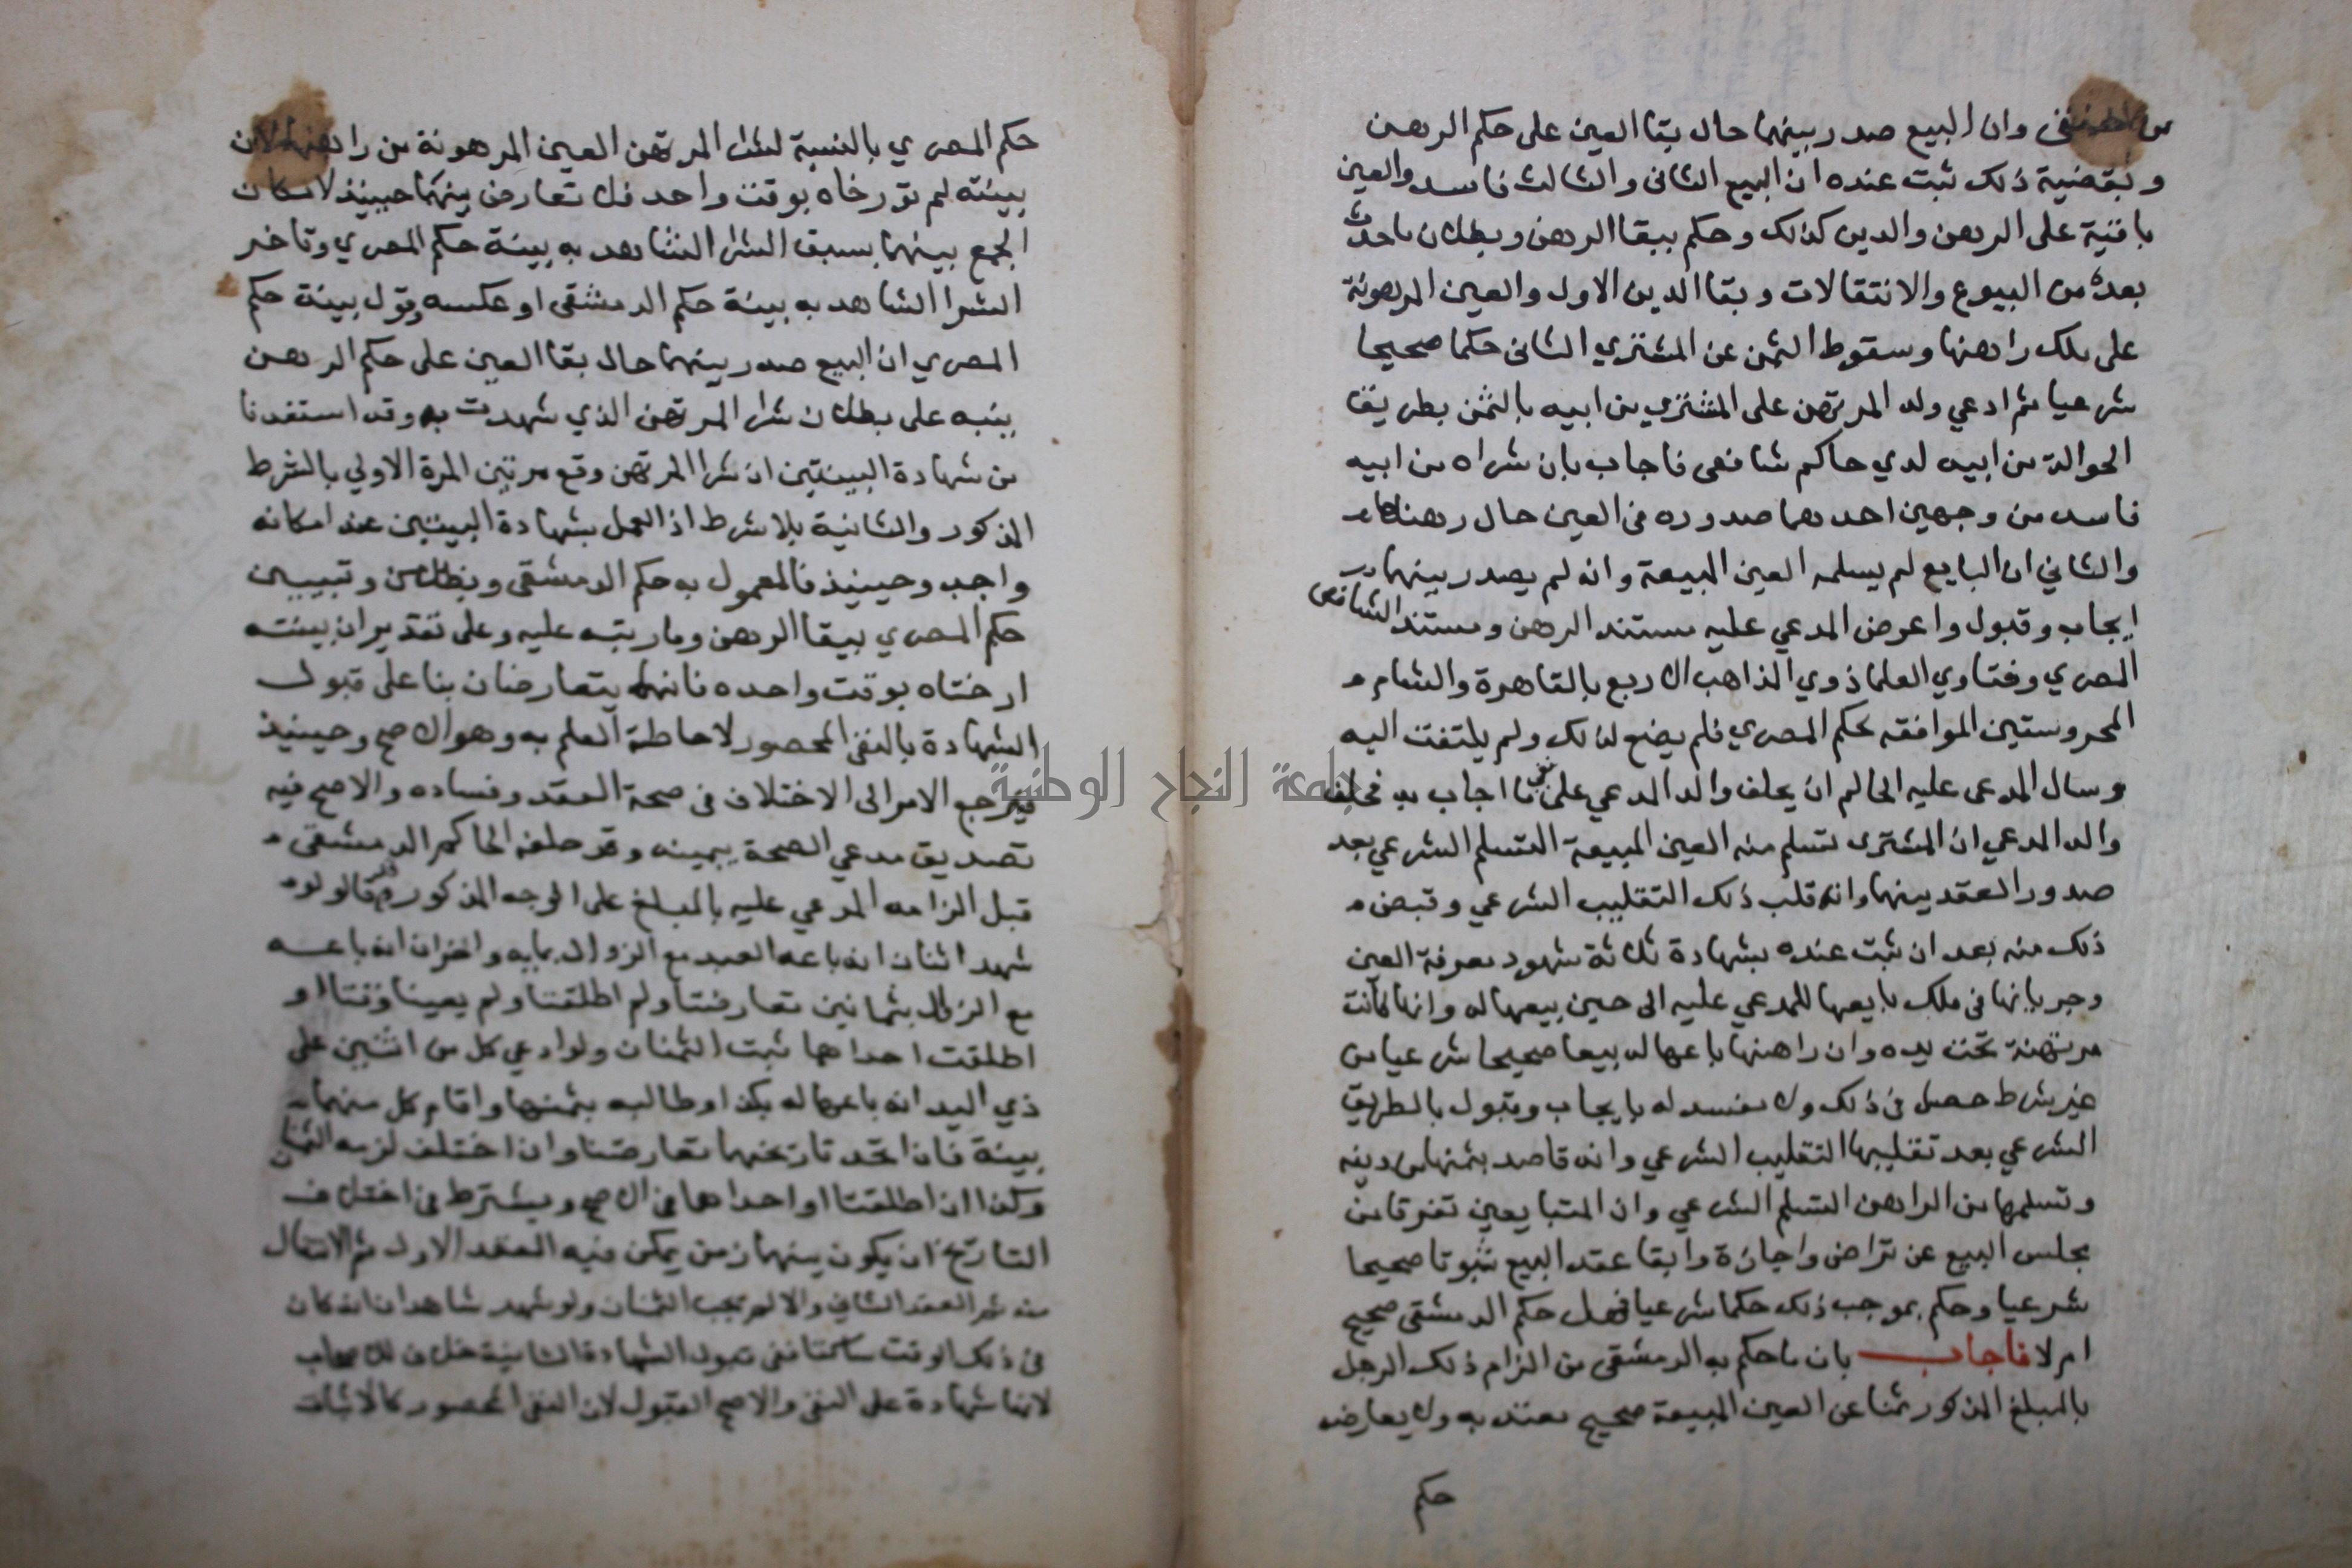 من وان البيع صدر بينهما حال بقا العين على حكم الرهن
وبقضية ذلك ثبت عنده ان البيع الثانى والثالث فاسد والعين
باقية على الرهن والدين كذلك وحكم ببقا الرهن وبطلان ماحدث
بعده من البيوع والانتقالات وبقا الدين الاول والعين المرهونة
على ملك راهنها وسقوط الثمن عن المشتري الثانى حكما صحيحا
شرعيا ثم ادعي ولد المرتهن على المشتري من ابيه بالثمن بطريق
الحوالة من ابيه لدي حاكم شافعى فاجاب بان شراه من ابيه
فاسد من وجهين احدهما صدوره فى العين حال رهنها
والثاني ان البايع لم يسلمه العين المبيعة وانه لم يصدر بينهما
ايجاب وقبول واعرض المدعي عليه مستند الرهن ومستند الشافعى
المصري وفتاوي العلما ذوي المذاهب الاربع بالقاهرة والشام
المحروستين الموافقه لحكم المصري فلم يضع لذلك ولم يلتفت اليه
وسال المدعى عليه الحالم ان يحلف والد المدعي على نفى ما اجاب به فحلف
والد المدعي ان المشترى تسلم منه العين المبيعة التسلم الشرعي بعد
صدور العقد بينهما وانه قلب ذلك التقليب الشرعي وقبض
ذلك منه بعد ان ثبت عنده بشهادة ثلاثة شهود معرفة العين
وجريانها فى ملك بايعها للمدعي عليه الى حين بيعها له وانها كانت
مرتهنة تحت يده وان راهنها باعها له بيعا صحيحا شرعيا من
غير شرط حصل فى ذلك ولا مفسد له بايجاب وقبول بالطريق
الشرعي بعد تقليبها التقليب الشرعي وانه قاصد بثمنها من دينه
وتسلمها من الراهن التسلم الشرعي وان المتبايعين تفرقا من
مجلس البيع عن تراض واجازة وابقا عقد البيع ثبوتا صحيحا
شرعيا وحكم بموجب ذلك حكما شرعيا فهل حكم الدمشقى صحيح
ام لا فاجاب بان ماحكم به الدمشقى من الزام ذلك الرجل
بالمبلغ المذكور ثمنا عن العين المبيعة صحيح معتد به ولا يعارضه
حكم
حكم المصري بالنسبة لشرا المرتهن العين المرهونة من راهنها لان
بينته لم تورخاه بوقت واحد فلا تعارض بينهما حينيذ لامكان
الجمع بينهما بسبق الشرا الشاهد به بينة حكم المصري وتاخر
الشرا الشاهد به بينة حكم الدمشقى او عكسه وقول بينة حكم
المصري ان البيع صدر بينهما حال بقا العين على حكم الرهن
ينبه على بطلان شرا المرتهن الذي شهدت به وقد استفدنا
من شهادة البينتين ان شرا المرتهن وقع مرتين المرة الاولي بالشرط
المذكور والثانية بلا شرط اذ العمل بشهادة البينتين عند امكانه
واجب وحينيذ فالمعمول به حكم الدمشقى وبطلان وتبيين
حكم المصري ببقا الرهن وما رتبه عليه وعلى تقدير ان بينته
ارختاه بوقت واحده فانهما يتعارضان بنا على قبول
الشهادة بالنفى المحصور لاحاطة العلم به وهو الاصح وحينيذ
فيرجع الامر الى الاختلاف فى صحة العقد وفساده والاصح فيه
تصديق مدعي الصحة بيمينه وقد حلفه الحاكم الدمشقى
قبل الزامه المدعي عليه بالمبلغ على الوجه المذكور وقد قالو لو
شهد اثنان انه باعه العبد مع الزوال بمايه واخران انه باعه
مع الزوال بثمانين تعارضتا ولم اطلقتا ولم يعينا وقتا او
اطلقت احداهما ثبت الثمنان ولو ادعي كل من اثنين على
ذي اليد انه باعها له بكذا وطالبه بثمنها واقام كل منهما
بينة فان اتحد تاريخهما تعارضتا وان اختلف لزمه الثمنان
وكذا ان اطلقتا او احداهما فى الاصح ويشترط فى اختلاف
التاريخ ان يكون بينهما زمن يمكن فيه العقد الاول ثم الانتقال
منه ثم العقد الثاني والا لم يجب الثمنان ولو شهد شاهدان انه كان
فى ذلك الوقت ساكتا ففى قبول الشهادة الثانية خلاف للاصحاب
لانها شهادة على النفى والاصح القبول لان النفى المحصور كالاثبات
جامعة النجاح الوطنية